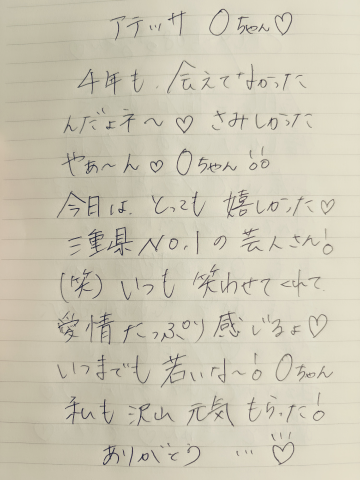 アテッサ Oちゃん♡
4年も、会えてなかった
んだょネ〜♡ さみしかった
やぁ〜ん♡ Oちゃん!!
今日は、とっても 嬉しかった♡
三重県NO.1の芸人さん!
(笑) いつも 笑わせてくれて、
愛情たっぷり感じるょ♡
いつまでも若いな〜! Oちゃん
私も沢山元気もらった!
ありがとう …♡